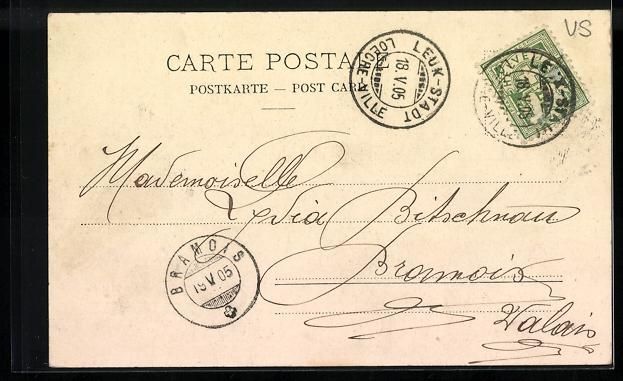 VS
CARTE POSTA
POSTKARTE — POST CAR
LEUK-STADT
LOECHE-VILLE
18.V.05
LEUK-STA
18.V.05
E-VILLE
Mademoiselle
Lydia Bitschnau
Bramois
Valais
BRAMOIS
19.V.05